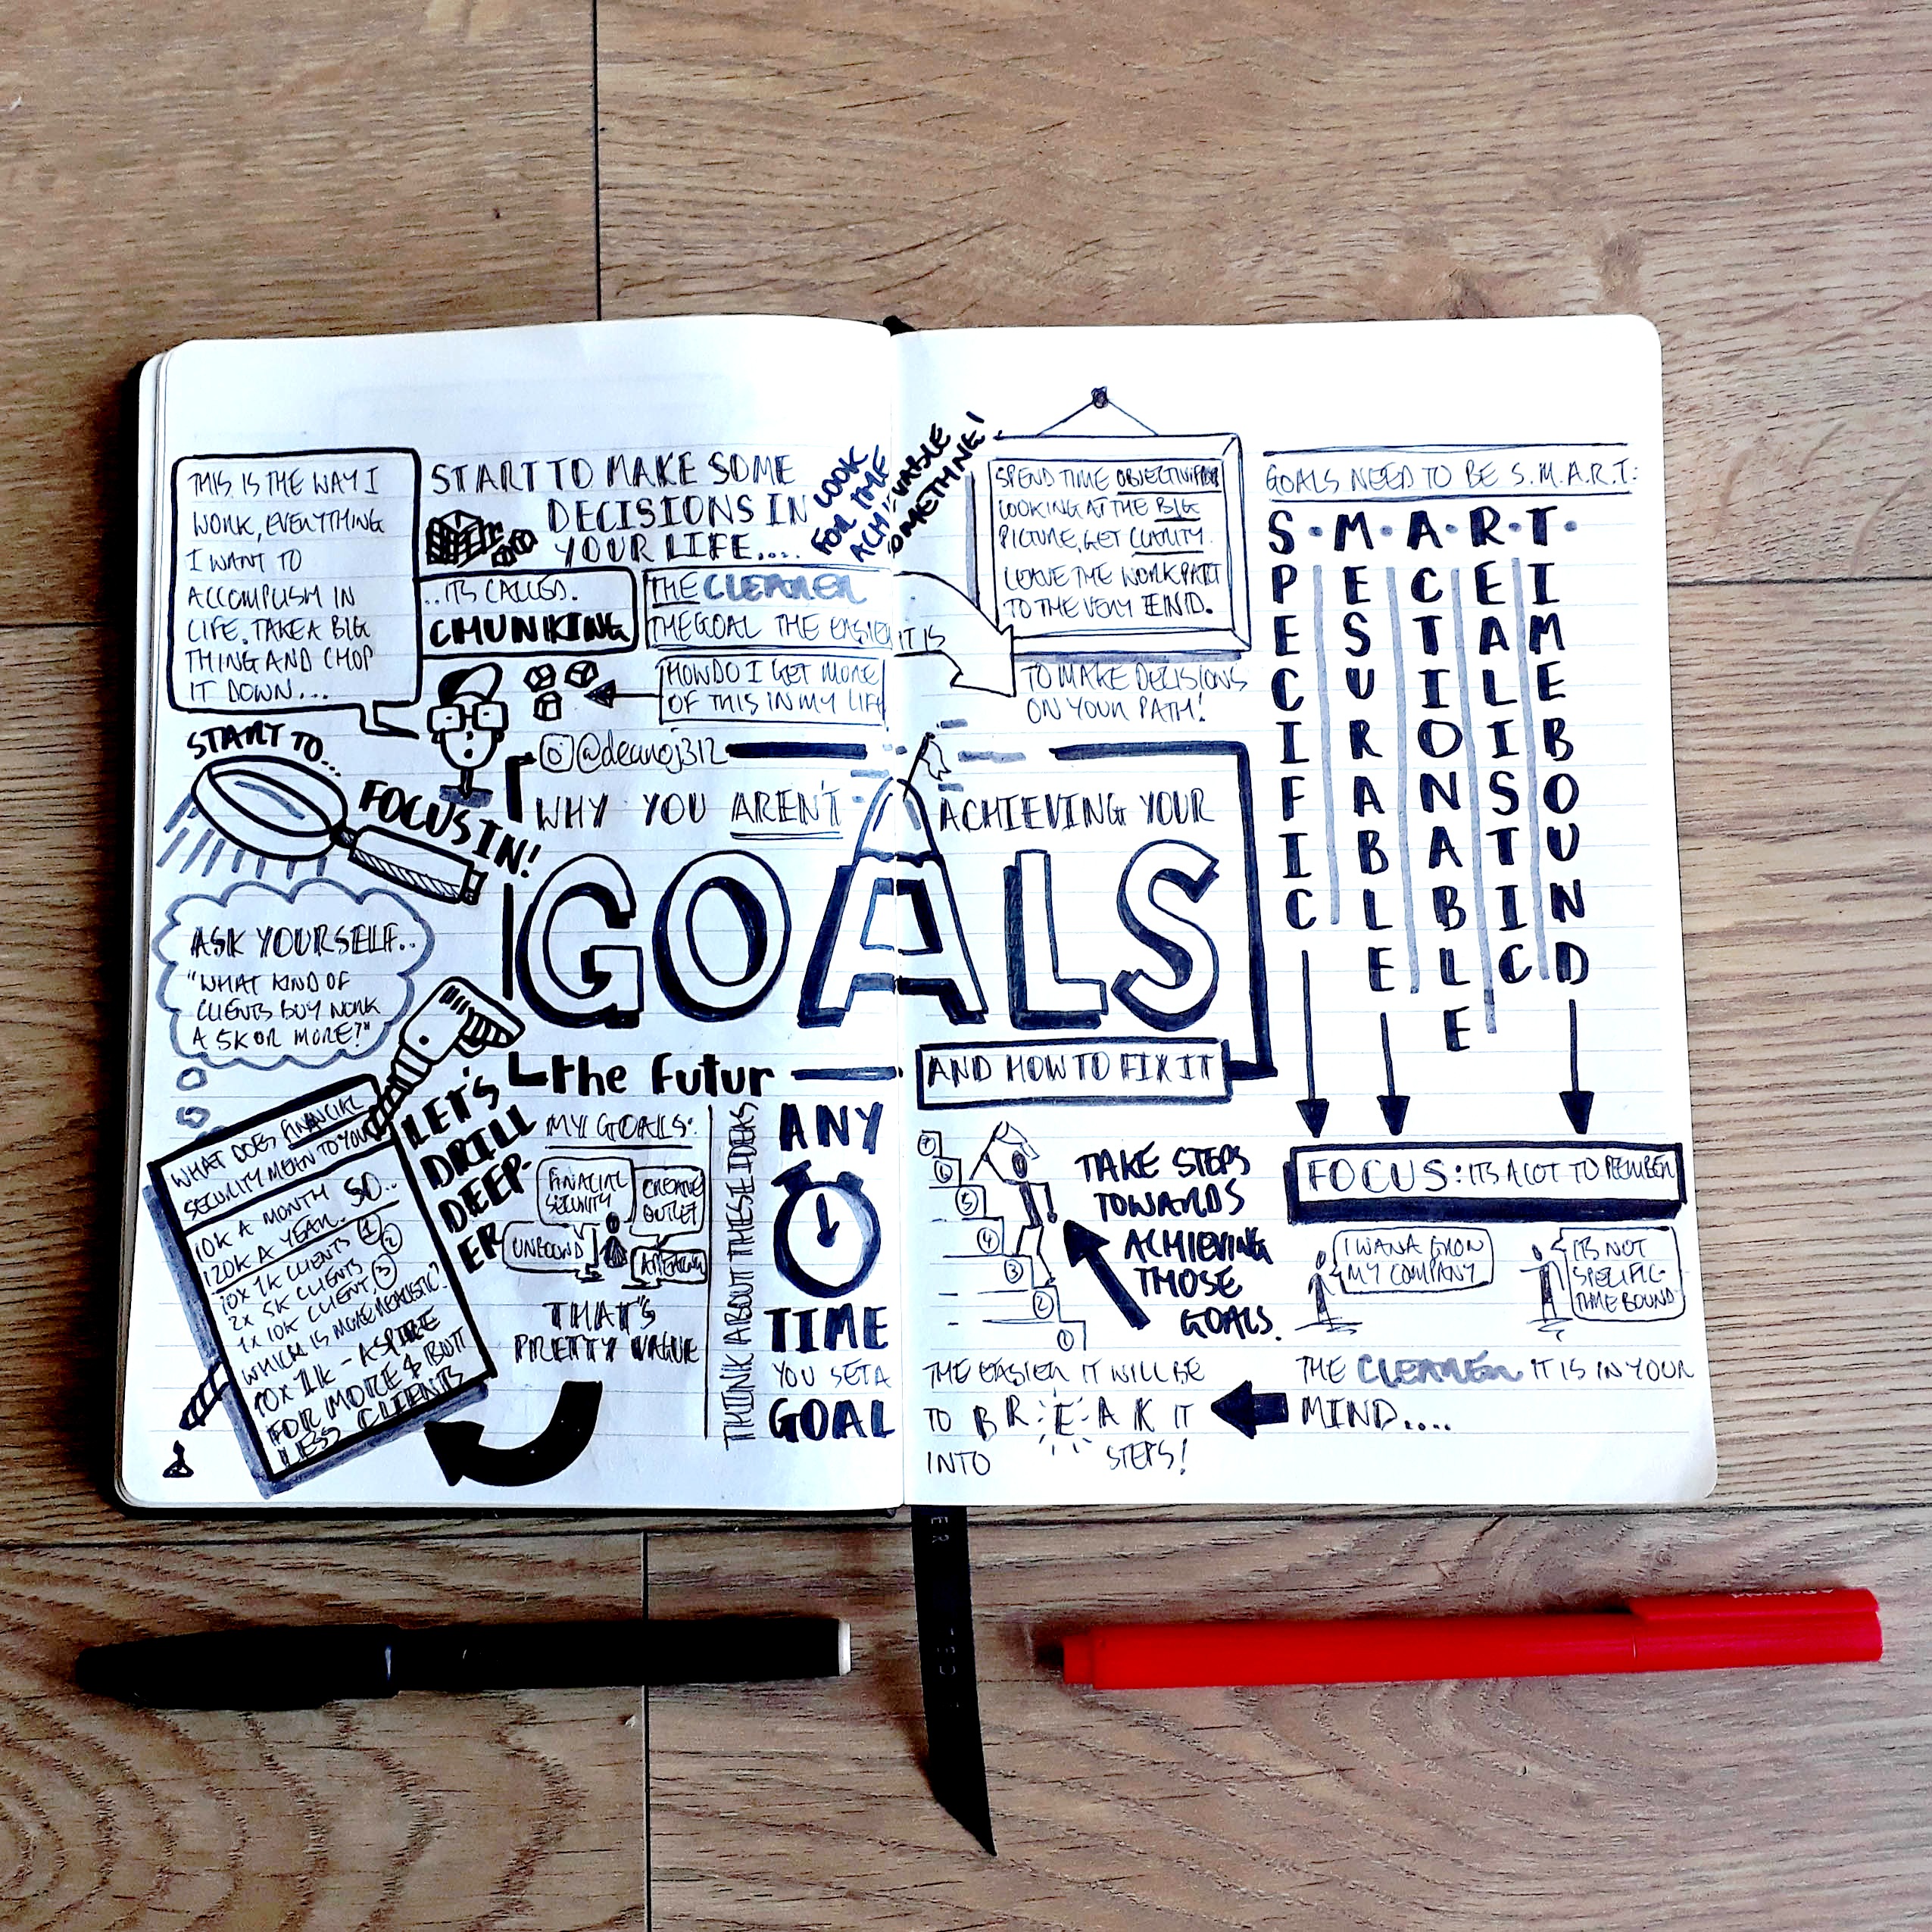 THIS IS THE WAY I
WORK, EVERYTHING
I WANT TO
ACCOMPLISH IN
LIFE. TAKE A BIG
THING AND CHOP
IT DOWN...
START TO MAKE SOME
DECISIONS IN
YOUR LIFE....
..ITS CALLED.
CHUNKING
THE CLEARER
THE GOAL THE EASIER IT IS
HOW DO I GET MORE
OF THIS IN MY LIFE
LOOK
FOR THE
ACHIEVABLE
SOMETHING!
SPEND TIME OBJECTIVELY
LOOKING AT THE BIG
PICTURE, GET CLARITY.
LEAVE THE WORK PART
TO THE VERY END.
TO MAKE DECISIONS
ON YOUR PATH!
GOALS NEED TO BE S.M.A.R.T:
S.M.A.R.T.
SPECIFIC
MESURABLE
ACTIONABLE
REALISTIC
TIMEBOUND
START TO...
FOCUS IN!
@deanoj312
WHY YOU AREN'T ACHIEVING YOUR
GOALS
AND HOW TO FIX IT
the Futur
ASK YOURSELF..
"WHAT KIND OF
CLIENTS BUY WORK
A 5K OR MORE?"
LET'S
DRILL
DEEP-
ER
WHAT DOES FINANCIAL
SECURITY MEAN TO YOU
10K A MONTH SO..
120K A YEAR.
10X 1K CLIENTS 1
2X 5K CLIENTS 2
1X 10K CLIENT, 3
WHICH IS MORE REALISTIC?
10X 1K - ASPIRE
FOR MORE & BUT
LESS CLIENTS
MY GOALS:
FINACIAL
SECURITY
CREATIVE
OUTLET
UNBOUND
THAT'S
PRETTY VAGUE
THINK ABOUT THESE IDEAS
ANY
TIME
YOU SET A
GOAL
7
6
5
4
3
2
1
TAKE STEPS
TOWARDS
ACHIEVING
THOSE
GOALS.
FOCUS: ITS A LOT TO REMEMBER
I WANA GROW
MY COMPANY
ITS NOT
SPECIFIC-
TIME BOUND
THE CLEARER IT IS IN YOUR
MIND....
THE EASIER IT WILL BE
TO BREAK IT
INTO STEPS!